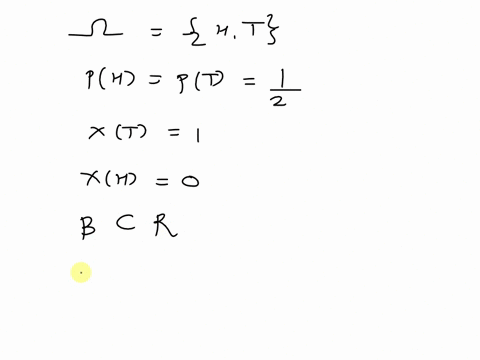 Ω = {H, T}
P(H) = P(T) = 1/2
X(T) = 1
X(H) = 0
B ⊂ R